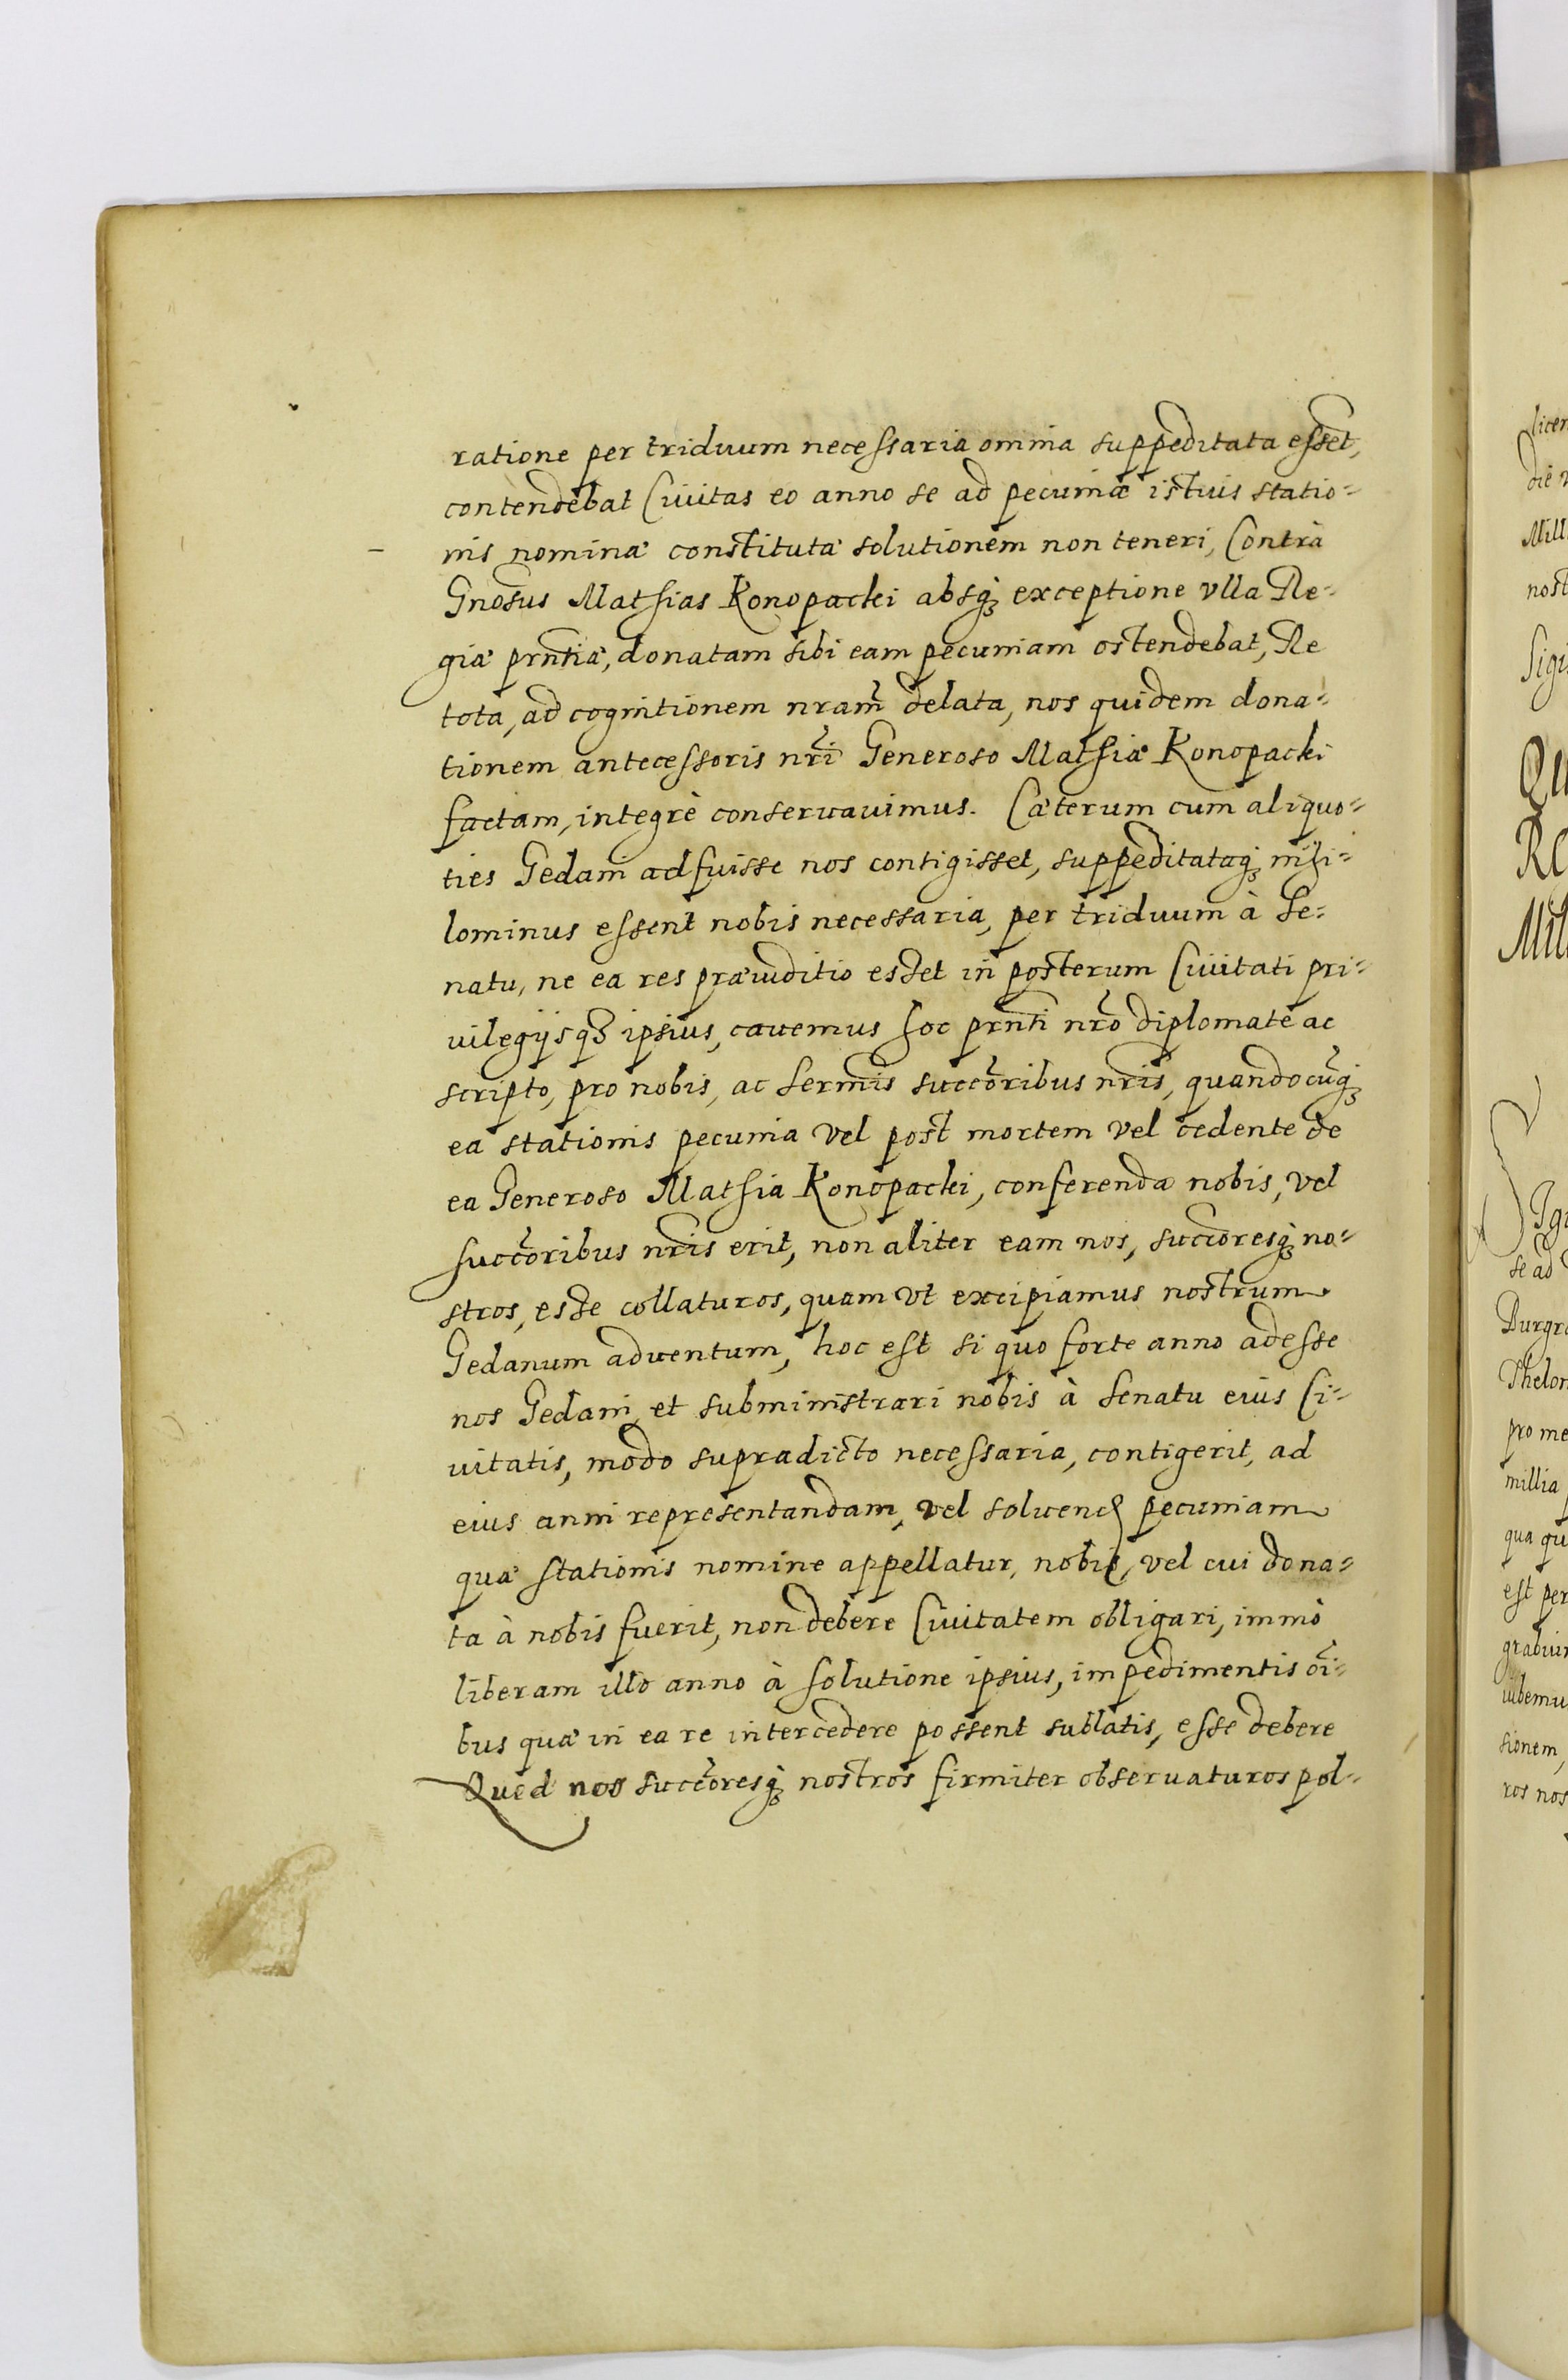 ratione per triduum necessaria omnia suppeditata essēt,
contendebat Civitas eo anno se ad pecuniæ istius statio=
nis nominæ constitutæ solutionem non teneri, Contrà
Gnosus Mathias Konopacki absq́ʒ exceptione vlla Re=
giæ prn̄tiæ, donatam sibi eam pecuniam ostendebat, Re
tota, ad cognitionem nram̃ delata, nos quidem dona=
tionem antecessoris nrĩ Generoso Mathiæ Konopacki
factam, integrè conservavimus. Cæterum cum aliquo=
ties Gedani adfuisse nos contigisset, suppeditataq́ʒ nihi=
lominus essent nobis necessaria, per triduum à Se=
natu, ne ea res præiuditio esset in posterum Civitati pri=
vilegijsqʒ ipsius, cavemus hoc prn̄ti nr̃o diplomate ac
scripto, pro nobis, ac Sermis succ̃oribus nr̃is, quandocũq́ʒ
ea stationis pecunia vel post mortem vel cedente de
ea Generoso Mathia Konopacki, conferenda nobis, vel
succ̃oribus nr̃is erit, non aliter eam nos, succ̃oresq́ʒ no=
stros, esse collaturos, quam vt excipiamus nostrum
Gedanum adventum, hoc est si quo forte anno adesse
nos Gedani, et subministrari nobis à Senatu eius Ci=
vitatis, modo supradicto necessaria, contigerit, ad
eius anni repręsentandam, vel solvend pecuniam
quæ stationis nomine appellatur, nobis, vel cui dona=
ta à nobis fuerit, non debere Civitatem obligari, immò
liberam illo anno à solutione ipsius, impedimentis oĩ=
bus quæ in ea re intercedere possent sublatis, esse debere
Quod nos succ̃oresq́ʒ nostros firmiter observaturos pol=